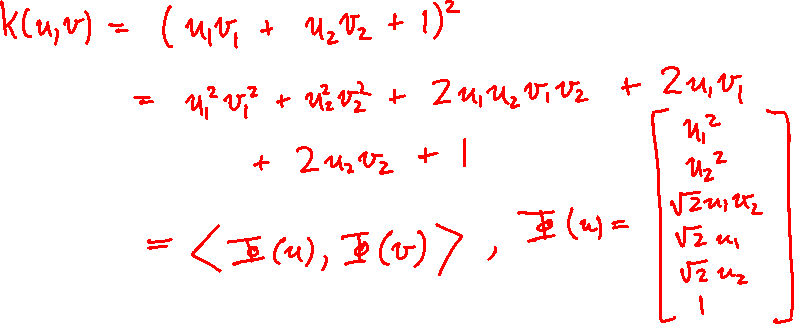 K(u,v) = (u₁v₁ + u₂v₂ + 1)²
= u₁²v₁² + u₂²v₂² + 2u₁u₂v₁v₂ + 2u₁v₁
+ 2u₂v₂ + 1
= ⟨Φ(u), Φ(v)⟩ , Φ(u) = [
u₁²
u₂²
√2u₁u₂
√2 u₁
√2 u₂
1
]